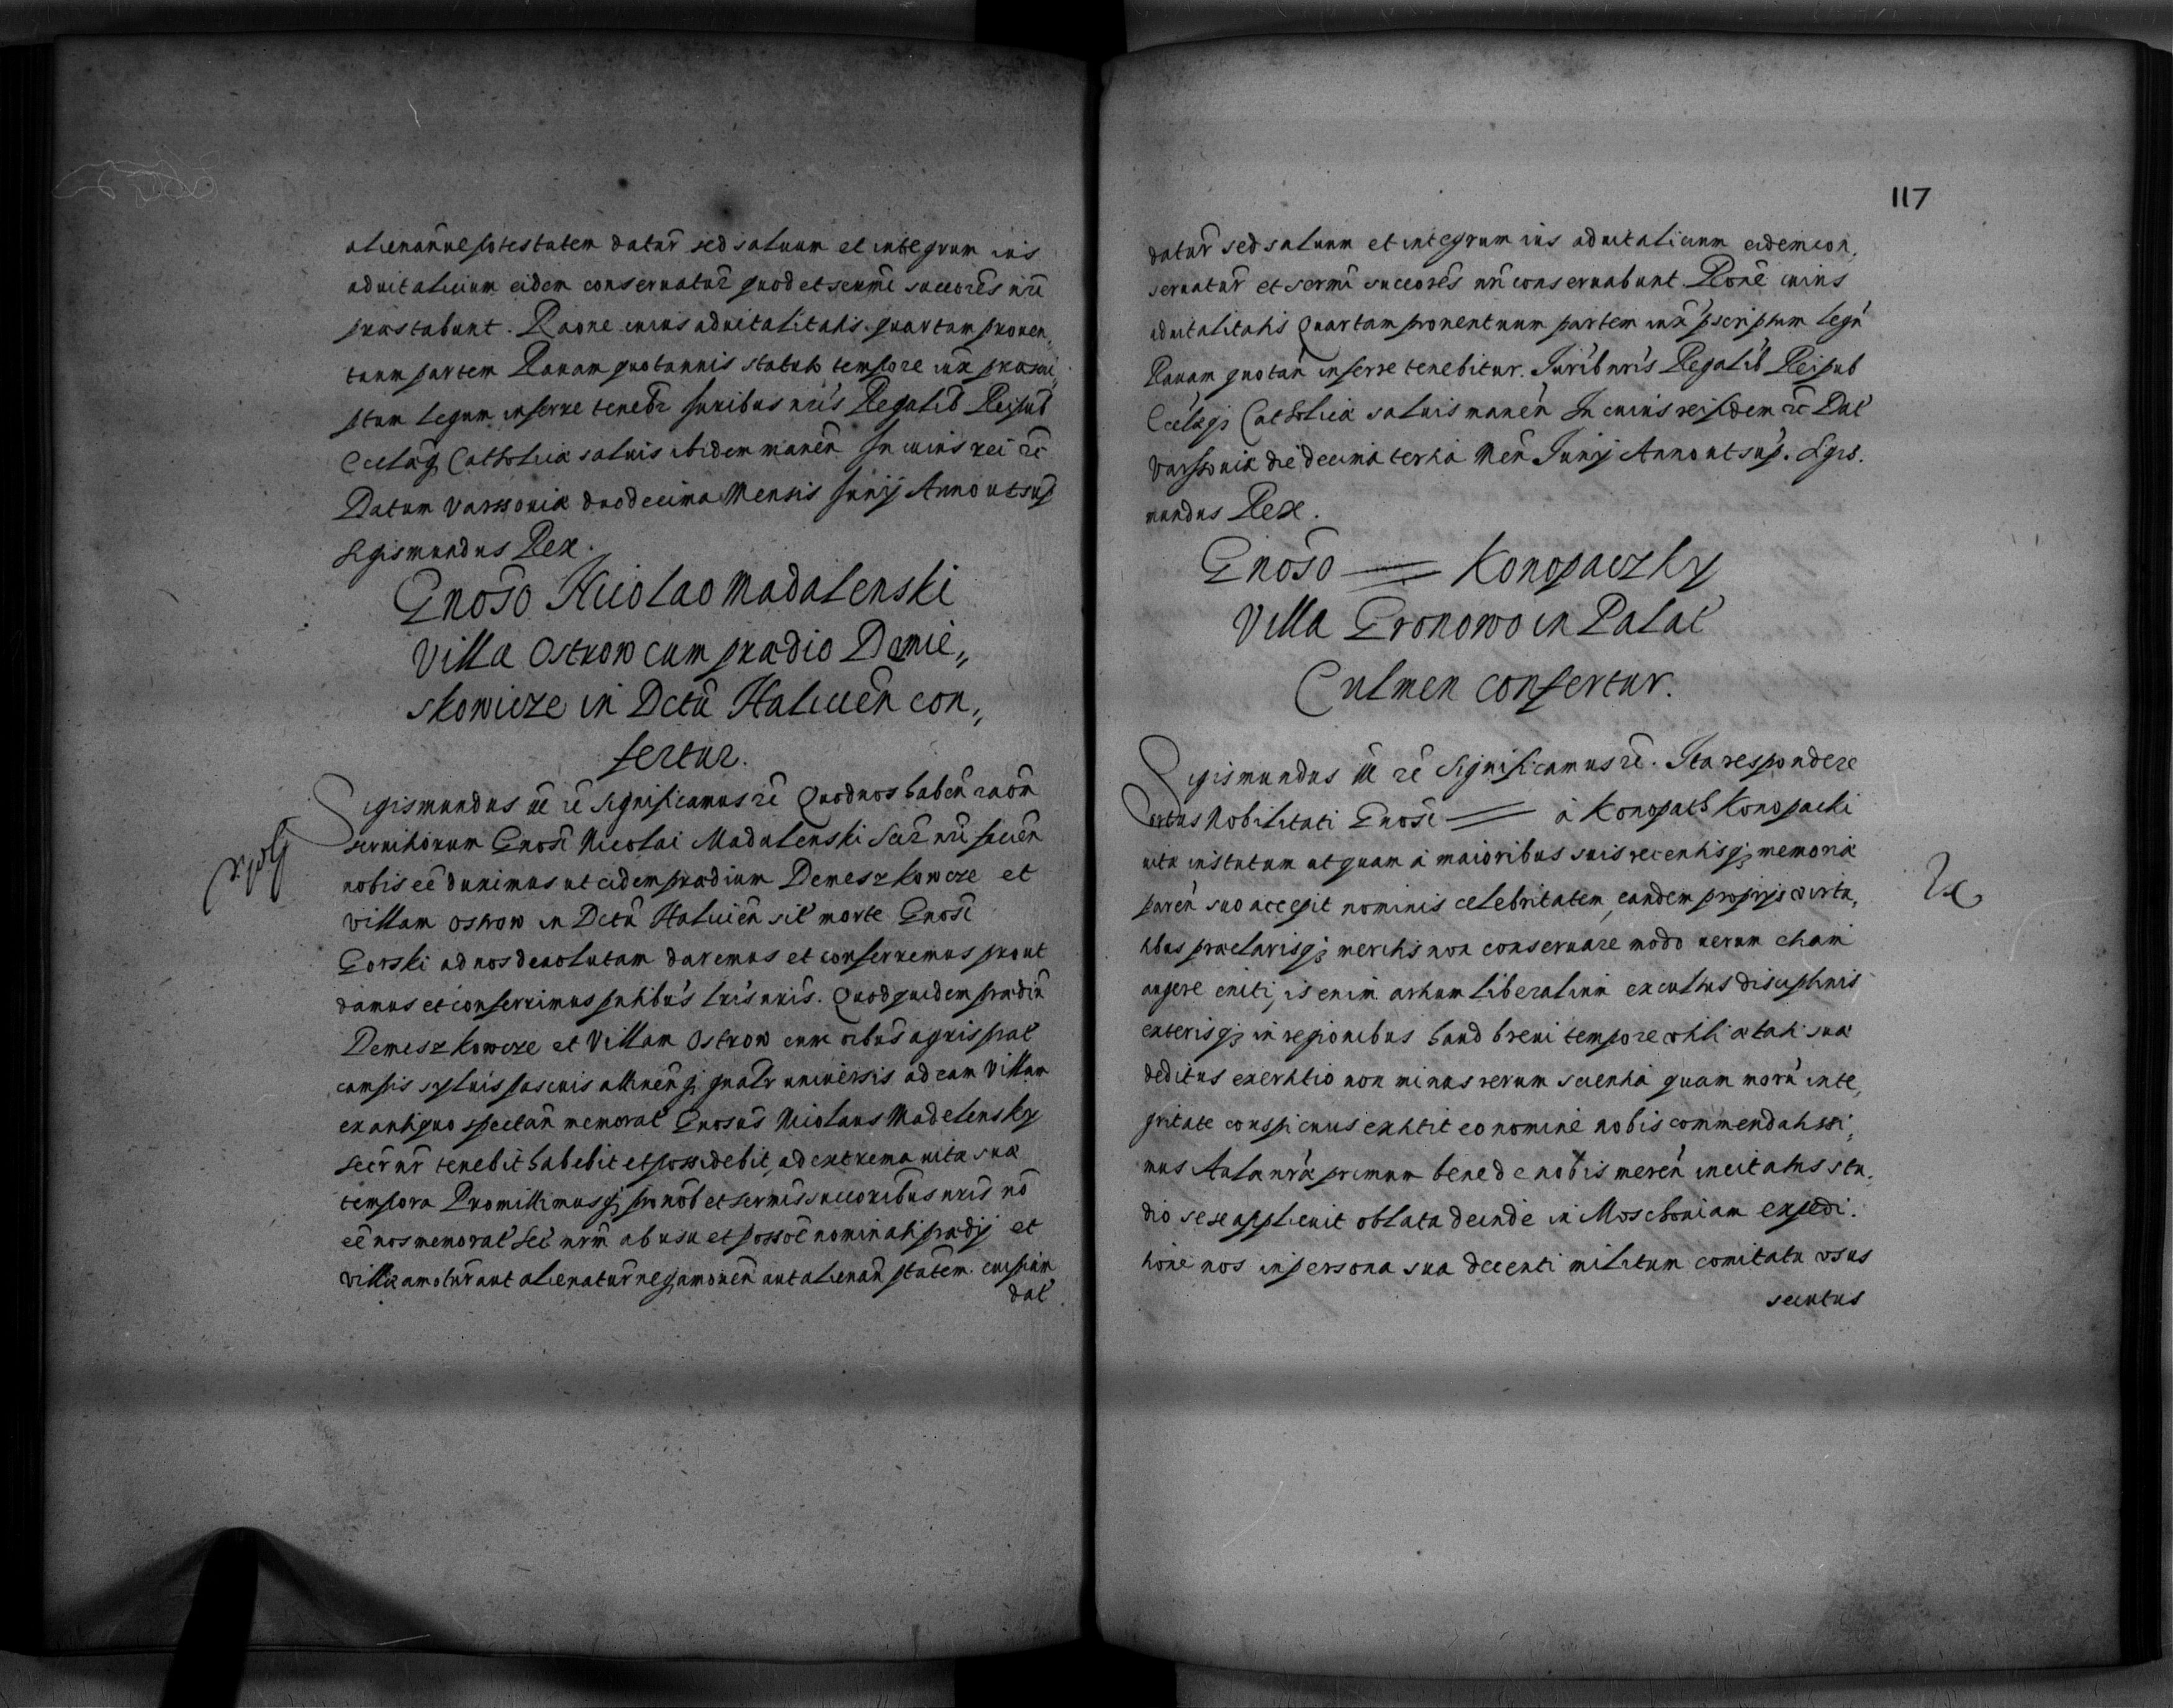 alienanuel potestatem datur̃ sed saluum et integrum ius
aduitalicium eidem conseruatur̃ quod et serm̃i succorẽs nr̃i
præstabunt. Raõne cuius aduitalitatis quartam prouen„
tuum partem Rauam quotannis statuto tempore iux̃ præscri„
ptum legum inferre teneb̃r Juribus nr̃is Regalib̃ Reipub̃
Ecclãq; Catholicæ saluis ibidem manẽn In cuius rei rẽ
Datum Varssouiæ duodecima Mensis Junij Anno ut sup̃
Sigismundus Rex.
Gnõso Nicolao Madalenski
Villa Ostrow cum prædio Demie„
skowicze in Dctũ Halicien̄ con„
fertur.
Sigismundus iii rẽ Significamus rẽ Quod nos habẽn raõn̄
seruitiorum Gnosi Nicolai Madalenski Secr̃ nr̃i faciẽn
nobis eẽ duximus ut eidem prædium Demeszkowcze et
villam Ostrow in Dctũ Halicien̄ sit̃ morte Gnosi
Gorski ad nos deuolutam daremus et conferremus prout
damus et conferimus pñtibus lrĩs nrĩs. Quod quidem prædiũ
Demeszkowcze et Villam Ostrow cum oĩbus agris prat̃
campis syluis pascuis attinẽnq; gnalr̃ uniuersis ad eam Villam
ex antiquo spectan̄ memorat̃ Gnosus Nicolaus Madelensky
Secr̃ nr̃ tenebit habebit et possidebit, ad extrema uitæ suæ
tempora Promittimusq; pro nob̃ et serm̃is succoribus nrĩs nõ
eẽ nos memorat̃ Sec̃ nrm̃ ab usu et possoẽ nominati prædij et
villæ amoturãut alienaturãnegamouẽn aut alienan̄ ptatem cuipiam
dat̃
117
datur̃ sed saluum et integrum ius aduitalicium eidem con„
seruatur̃ et serm̃i succorẽs nrĩ conseruabunt Roñe cuius
aduitalitatis Quartam prouentuum partem iux̃ pscriptum legũ
Rauam quotan̄ inferre tenebitur. Jurib̃ nrĩs Regalib̃ Reipub
Ecclæq; Catholicæ saluis manẽn In cuius rei fidem rẽ Dat̃
Varssouiæ die decima tertia Men̄ Junij Anno ut sup̃. Sigis.
mundus Rex.
Gnõso = Konopaczky
Villa Gronowo in Palat̃
Culmen confertur.
Sigismundus iii rẽ Significamus rẽ. Ita respondere
ortus Nobilitati Gnosi = à Konopath Konopacki
uitæ institutum ut quam à maioribus suis recentisq; memoriæ
paren̄ suo accepit nominis celebritatem, eandem proprijs virtu„
tibus præclarisq; meritis non conseruare modo uerum etiam
augere eniti, is enim artium liberalium excultus disciplinis
exterisq; in regionibus haud breui tempore vtili ætati suæ
deditus exercitio non minus rerum scientia quam morũ inte„
gritate conspicuus extitit eo nomine nobis commendatissi„
mus Aula nrã primum bene de nobis merẽn incitatus stu„
dio sese applicuit oblata deinde in Moschouiam expedi.
tione nos in persona sua decenti militum comitatu vsus
secutus